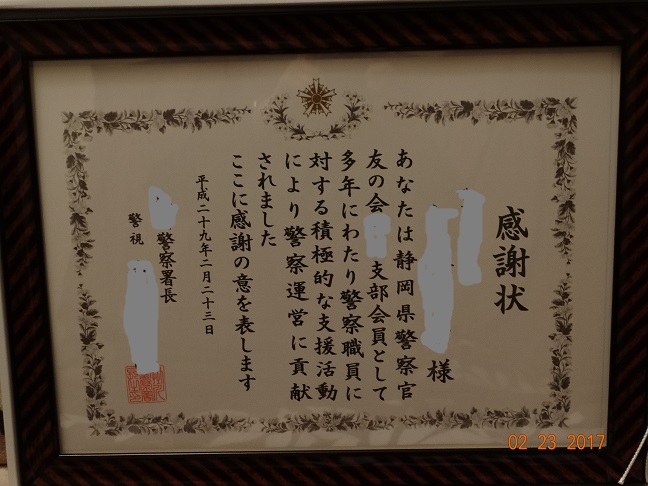 感謝状
様
あなたは静岡県警察官
友の会 支部会員として
多年にわたり警察職員に
対する積極的な支援活動
により警察運営に貢献
されました
ここに感謝の意を表します
平成二十九年二月二十三日
警察署長
警視
02 23 2017